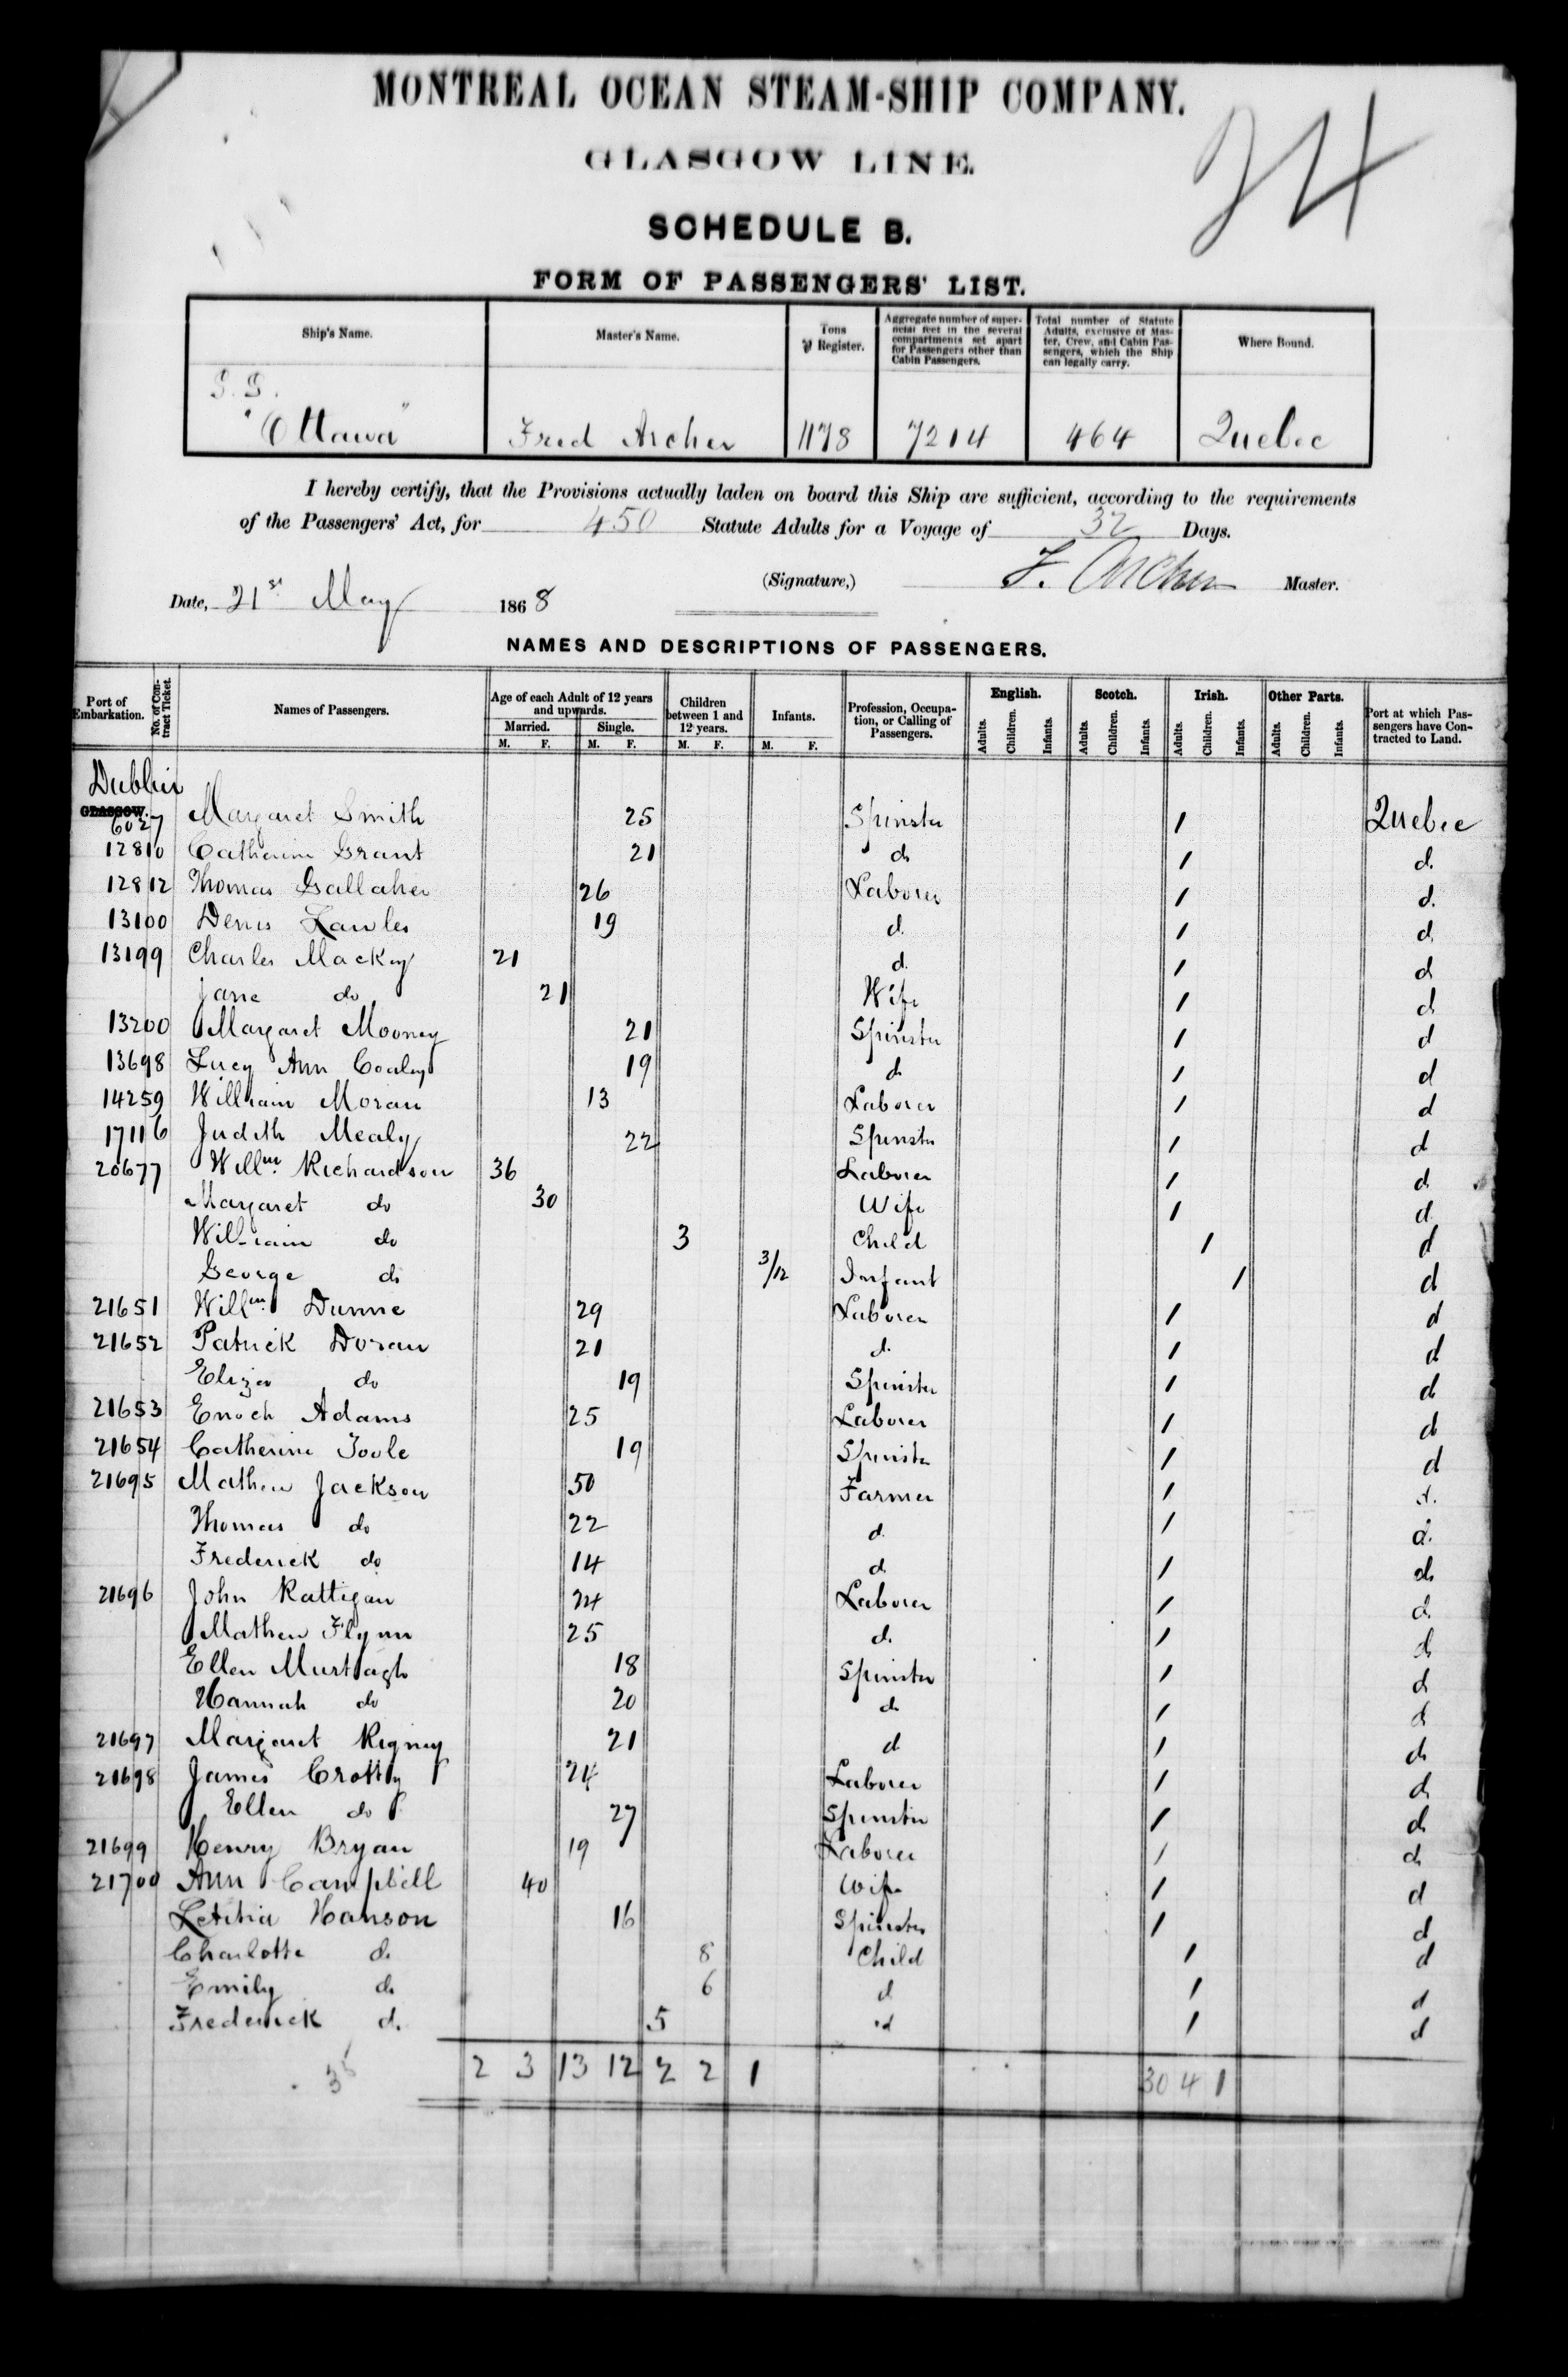 24
MONTREAL OCEAN STEAM-SHIP COMPANY.
GLASGOW LINE.
SCHEDULE B.
FORM OF PASSENGERS' LIST.
Ship's Name. Master's Name. Tons ℔ Register. Aggregate number of superficial feet in the several compartments set apart for Passengers other than Cabin Passengers. Total number of Statute Adults, exclusive of Master, Crew, and Cabin Passengers, which the Ship can legally carry. Where Bound.
S.S.
"Ottawa" Fred Archer 1178 7214 464 Quebec
I hereby certify, that the Provisions actually laden on board this Ship are sufficient, according to the requirements
of the Passengers' Act, for 450 Statute Adults for a Voyage of 32 Days.
(Signature,) F. Archer Master.
Date, 21st May 1868
NAMES AND DESCRIPTIONS OF PASSENGERS.
Port of Embarkation. No. of Contract Ticket. Names of Passengers. Age of each Adult of 12 years and upwards. Children between 1 and 12 years. Infants. Profession, Occupation, or Calling of Passengers. English. Scotch. Irish. Other Parts. Port at which Passengers have Contracted to Land.
Married. Single.
M. F. M. F. M. F. M. F. Adults. Children. Infants. Adults. Children. Infants. Adults. Children. Infants. Adults. Children. Infants.
Dublin
GLASGOW.
6027 Margaret Smith 25 Spinster / Quebec
12810 Catherine Grant 21 d / d.
12812 Thomas Gallaher 26 Laborer / d.
13100 Denis Lawles 19 d. / d
13199 Charles Mackay 21 d. / d
Jane do 21 Wife / d
13200 Margaret Mooney 21 Spinster / d
13698 Lucy Ann Conley 19 d / d
14259 William Moran 13 Laborer / d
17116 Judith Mealy 22 Spinster / d
20677 Willm. Richardson 36 Laborer / d
Margaret do 30 Wife / d
William do 3 Child / d
George do 3/12 Infant / d
21651 Willm. Dunne 29 Laborer / d
21652 Patrick Doran 21 d. / d
Eliza do 19 Spinster / d
21653 Enoch Adams 25 Laborer / d
21654 Catherine Toole 19 Spinster / d
21695 Mathew Jackson 50 Farmer / d.
Thomas do 22 d. / d.
Frederick do 14 d / d
21696 John Rattigan 24 Laborer / d.
Mathew Flynn 25 d. / d
Ellen Murtagh 18 Spinster / d
Hannah do 20 d / d
21697 Margaret Rigney 21 d / d
21698 James Crotty 24 Laborer / d
Ellen do 27 Spinster / d
21699 Henry Bryan 19 Laborer / d
21700 Ann Campbell 40 Wife / d
Letitia Hanson 16 Spinster / d
Charlotte d. 8 Child / d
Emily d. 6 d / d
Frederick d. 5 d / d
35 2 3 13 12 2 2 1 30 4 1